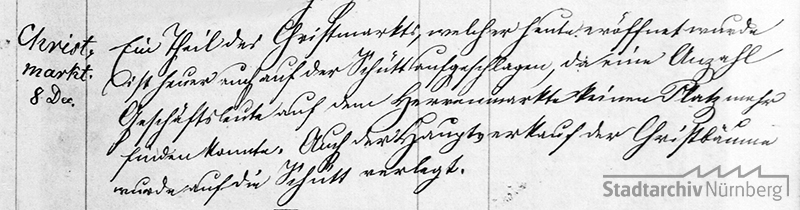 Christ-
markt.
8 Dec.
Ein Theil des Christmarkts, welcher heute eröffnet wurde
ist heuer auch auf der Schütt aufgeschlagen, da eine Anzahl
Geschäftsleute auf dem Herrenmarkte keinen Platz mehr
finden konnte. Auch der Hauptverkauf der Christbäume
wurde auf die Schütt verlegt.
Stadtarchiv Nürnberg